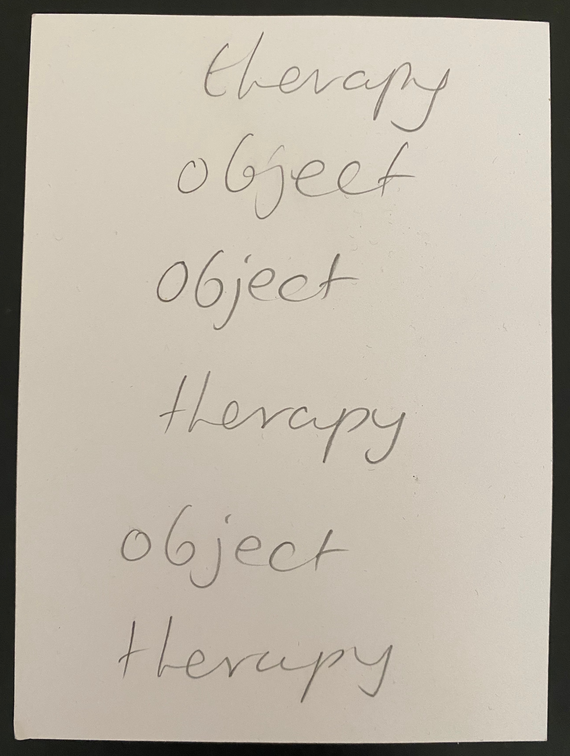 therapy
object
object
therapy
object
therapy